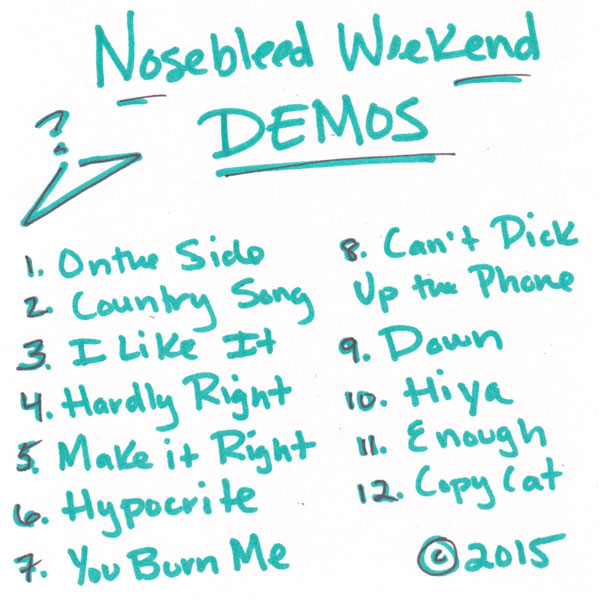 Nosebleed Weekend
DEMOS
?
1. On the Side
2. Country Song
3. I Like It
4. Hardly Right
5. Make it Right
6. Hypocrite
7. You Burn Me
8. Can't Dick
Up the Phone
9. Down
10. Hiya
11. Enough
12. Copy Cat
© 2015